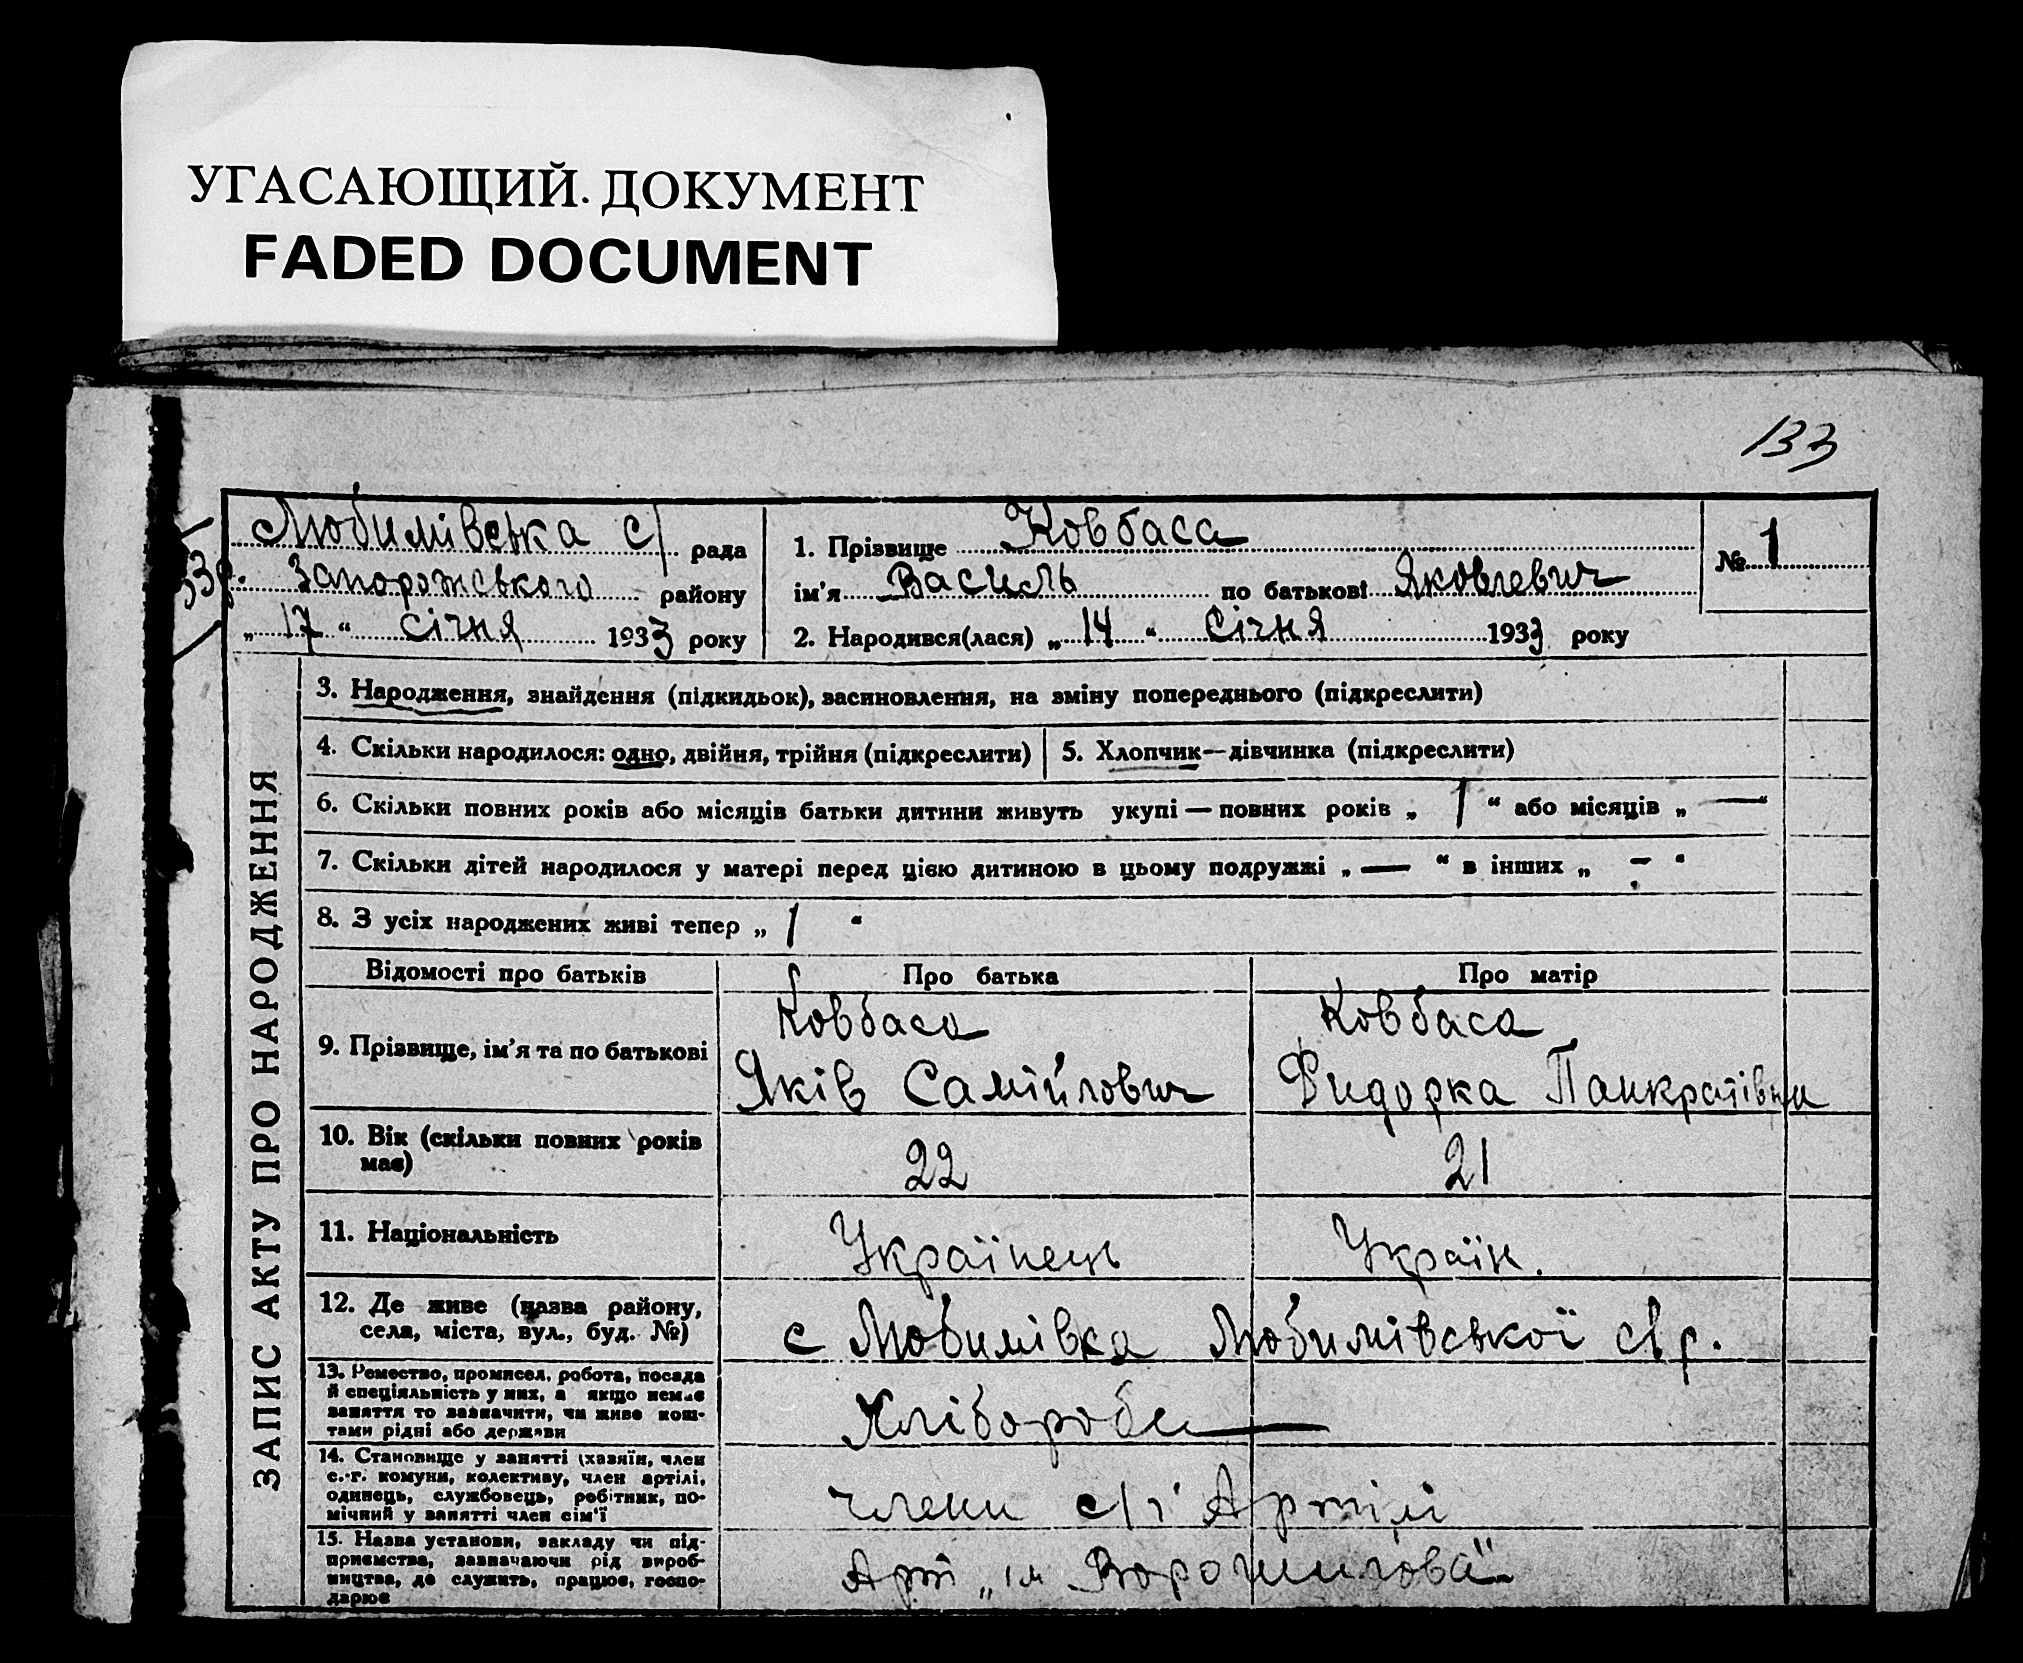 УГАСАЮЩИЙ. ДОКУМЕНТ
FADED DOCUMENT
133
Любимівська с/ рада
Запорожського району
„ 17 “ січня 1933 року
1. Прізвище Ковбаса
ім'я Василь по батькові Яковлевич
2. Народився(лася) „ 14 “ Січня 1933 року
№ 1
ЗАПИС АКТУ ПРО НАРОДЖЕННЯ
3. Народження, знайдення (підкидьок), засиновлення, на зміну попереднього (підкреслити)
4. Скільки народилося: одно, двійня, трійня (підкреслити)
5. Хлопчик—дівчинка (підкреслити)
6. Скільки повних років або місяців батьки дитини живуть укупі — повних років „ 1 “ або місяців „ — “
7. Скільки дітей народилося у матері перед цією дитиною в цьому подружжі „ — “ в інших „ - “
8. З усіх народжених живі тепер „ 1 “
Відомості про батьків Про батька Про матір
9. Прізвище, ім'я та по батькові
Ковбаса
Яків Самійлович
Ковбаса
Фидорка Панкратівна
10. Вік (скільки повних років
має)
22
21
11. Національність
Українець
Україн.
12. Де живе (назва району,
села, міста, вул., буд. №)
с Любимівка Любимівської с/р.
13. Ремество, промисел, робота, посада
й спеціяльність у них, а якщо немає
заняття то зазначити, чи живе кош-
тами рідні або держави
Хлібороби —
14. Становище у занятті (хазяїн, член
с.-г. комуни, колективу, член артілі,
одинець, службовець, робітник, по-
мічний у занятті член сім'ї
члени с/г Артілі
15. Назва установи, закладу чи під-
приємства, зазначаючи рід вироб-
ництва, де служить, працює, госпо-
дарює
Арт „ім Ворошилова“